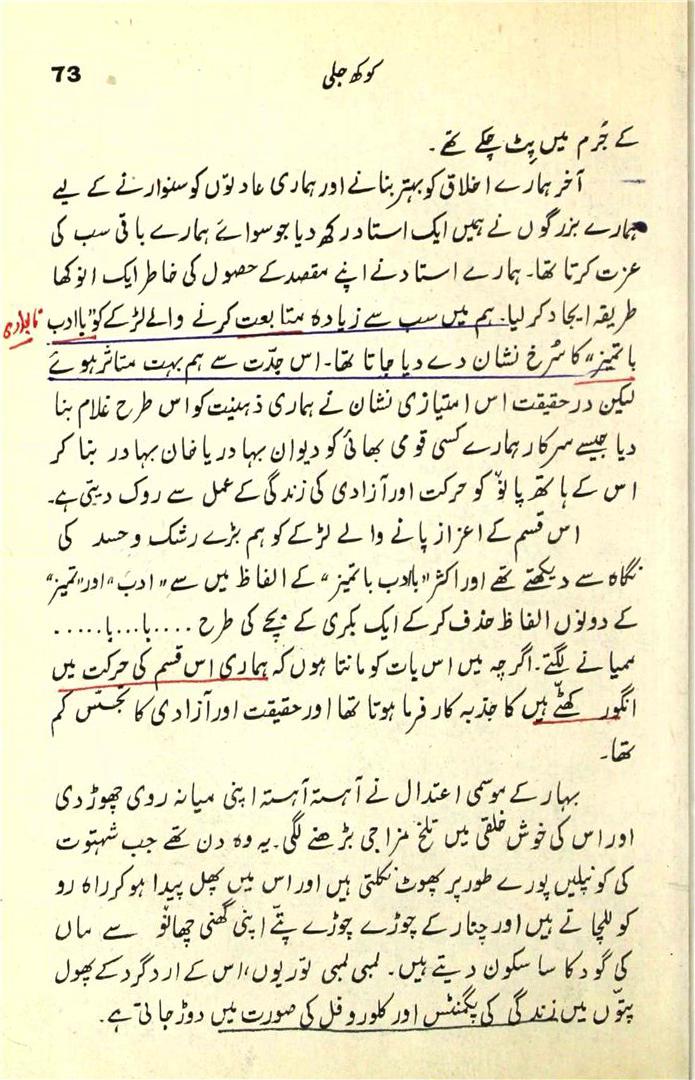 73
کوکھ جلی
کے جُرم میں پِٹ چکے تھے۔
آخر ہمارے اخلاق کو بہتر بنانے اور ہماری عادتوں کو سنوارنے کے لیے
ہمارے بزرگوں نے ہمیں ایک استاد رکھ دیا جو سوائے ہمارے باقی سب کی
عزت کرتا تھا۔ ہمارے استاد نے اپنے مقصد کے حصول کی خاطر ایک انوکھا
طریقہ ایجاد کر لیا۔ ہم میں سب سے زیادہ متابعت کرنے والے لڑکے کو "باادب
باتمیز" کا سُرخ نشان دے دیا جاتا تھا۔ اس جدّت سے ہم بہت متاثر ہوئے
لیکن درحقیقت اس امتیازی نشان نے ہماری ذہنیت کو اس طرح غلام بنا
دیا جیسے سرکار ہمارے کسی قومی بھائی کو دیوان بہادر یا خان بہادر بنا کر
اس کے ہاتھ پانوٴ کو حرکت اور آزادی کی زندگی کے عمل سے روک دیتی ہے۔
اس قسم کے اعزاز پانے والے لڑکے کو ہم بڑے رشک و حسد کی
نگاہ سے دیکھتے تھے اور اکثر "باادب باتمیز" کے الفاظ میں سے "ادب" اور "تمیز"
کے دونوں الفاظ حذف کر کے ایک بکری کے بچے کی طرح ....با...با.....
ممیانے لگتے۔ اگرچہ میں اس بات کو مانتا ہوں کہ ہماری اس قسم کی حرکت میں
انگور کھٹّے ہیں کا جذبہ کار فرما ہوتا تھا اور حقیقت اور آزادی کا تجسّس کم
تھا۔
بہار کے موسمی اعتدال نے آہستہ آہستہ اپنی میانہ روی چھوڑ دی
اور اس کی خوش خلقی میں تلخ مزاجی بڑھنے لگی۔ یہ وہ دن تھے جب شہتوت
کی کونپلیں پورے طور پر پھوٹ نکلتی ہیں اور اس میں پھل پیدا ہو کر راہ رو
کو للچاتے ہیں اور چنار کے چوڑے چوڑے پتّے اپنی گھنی چھانوٴ سے ماں
کی گود کا سا سکون دیتے ہیں۔ لمبی لمبی توریوں، اس کے ارد گرد کے پھول
پتّوں میں زندگی کی پگمنٹس اور کلوروفل کی صورت میں دوڑ جاتی ہے۔